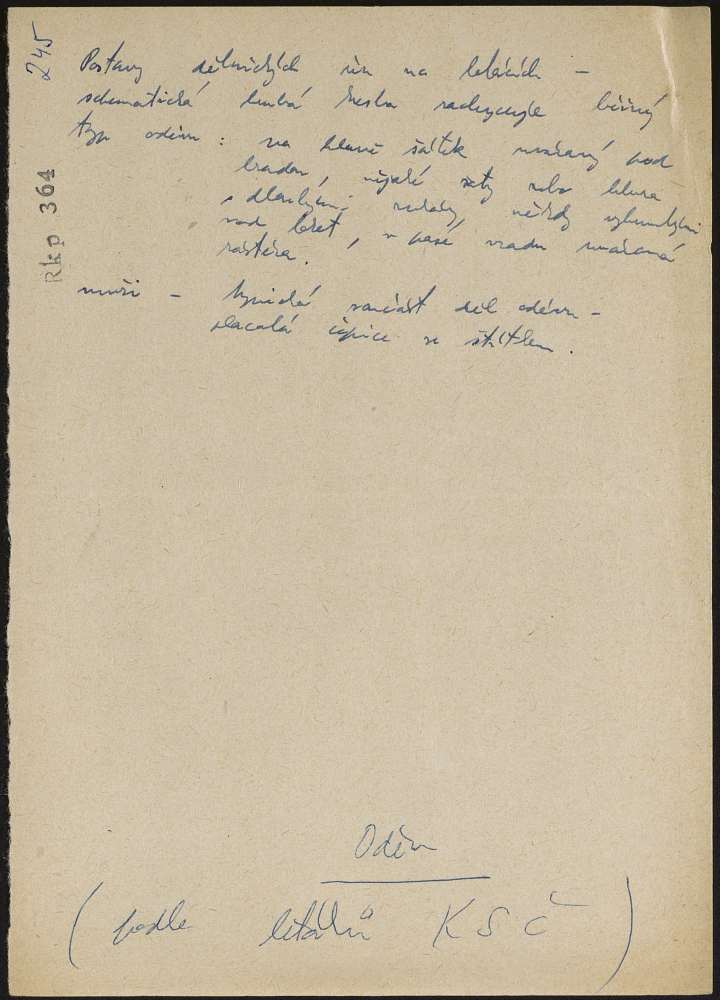 245
Rkp 364
Postavy dělnických žen na letácích –
schematická hrubá kresba zachycuje běžný
typ oděvu : na hlavě šátek uvázaný pod
bradou, nějaké šaty nebo blusa
s dlouhými rukávy, někdy vyhrnutými
nad loket, v pasé vzadu uvázaná
zástěra.
muži – typická součást děl oděvu –
placatá čepice se štítkem.
Oděv
( podle letáků KSČ )